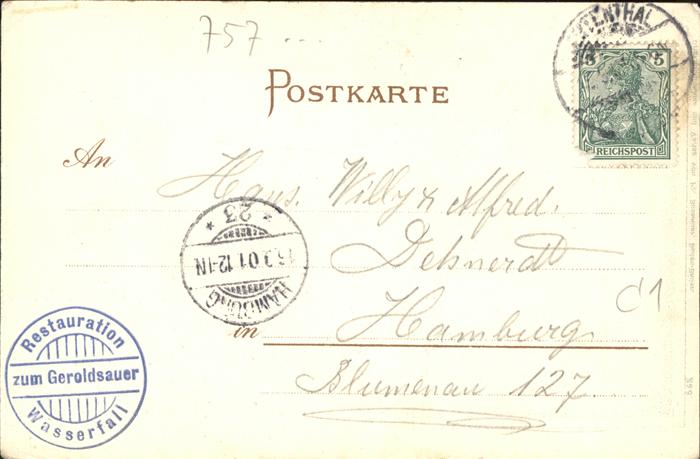 757...
POSTKARTE
ENTHAL
5 5
REICHSPOST
An
Hans. Willy & Alfred.
Dehnerdt
HAMBURG
01 12-1N
* 23 *
in Hamburg
Blumenau 127.
C1
Restauration
zum Geroldsauer
Wasserfall